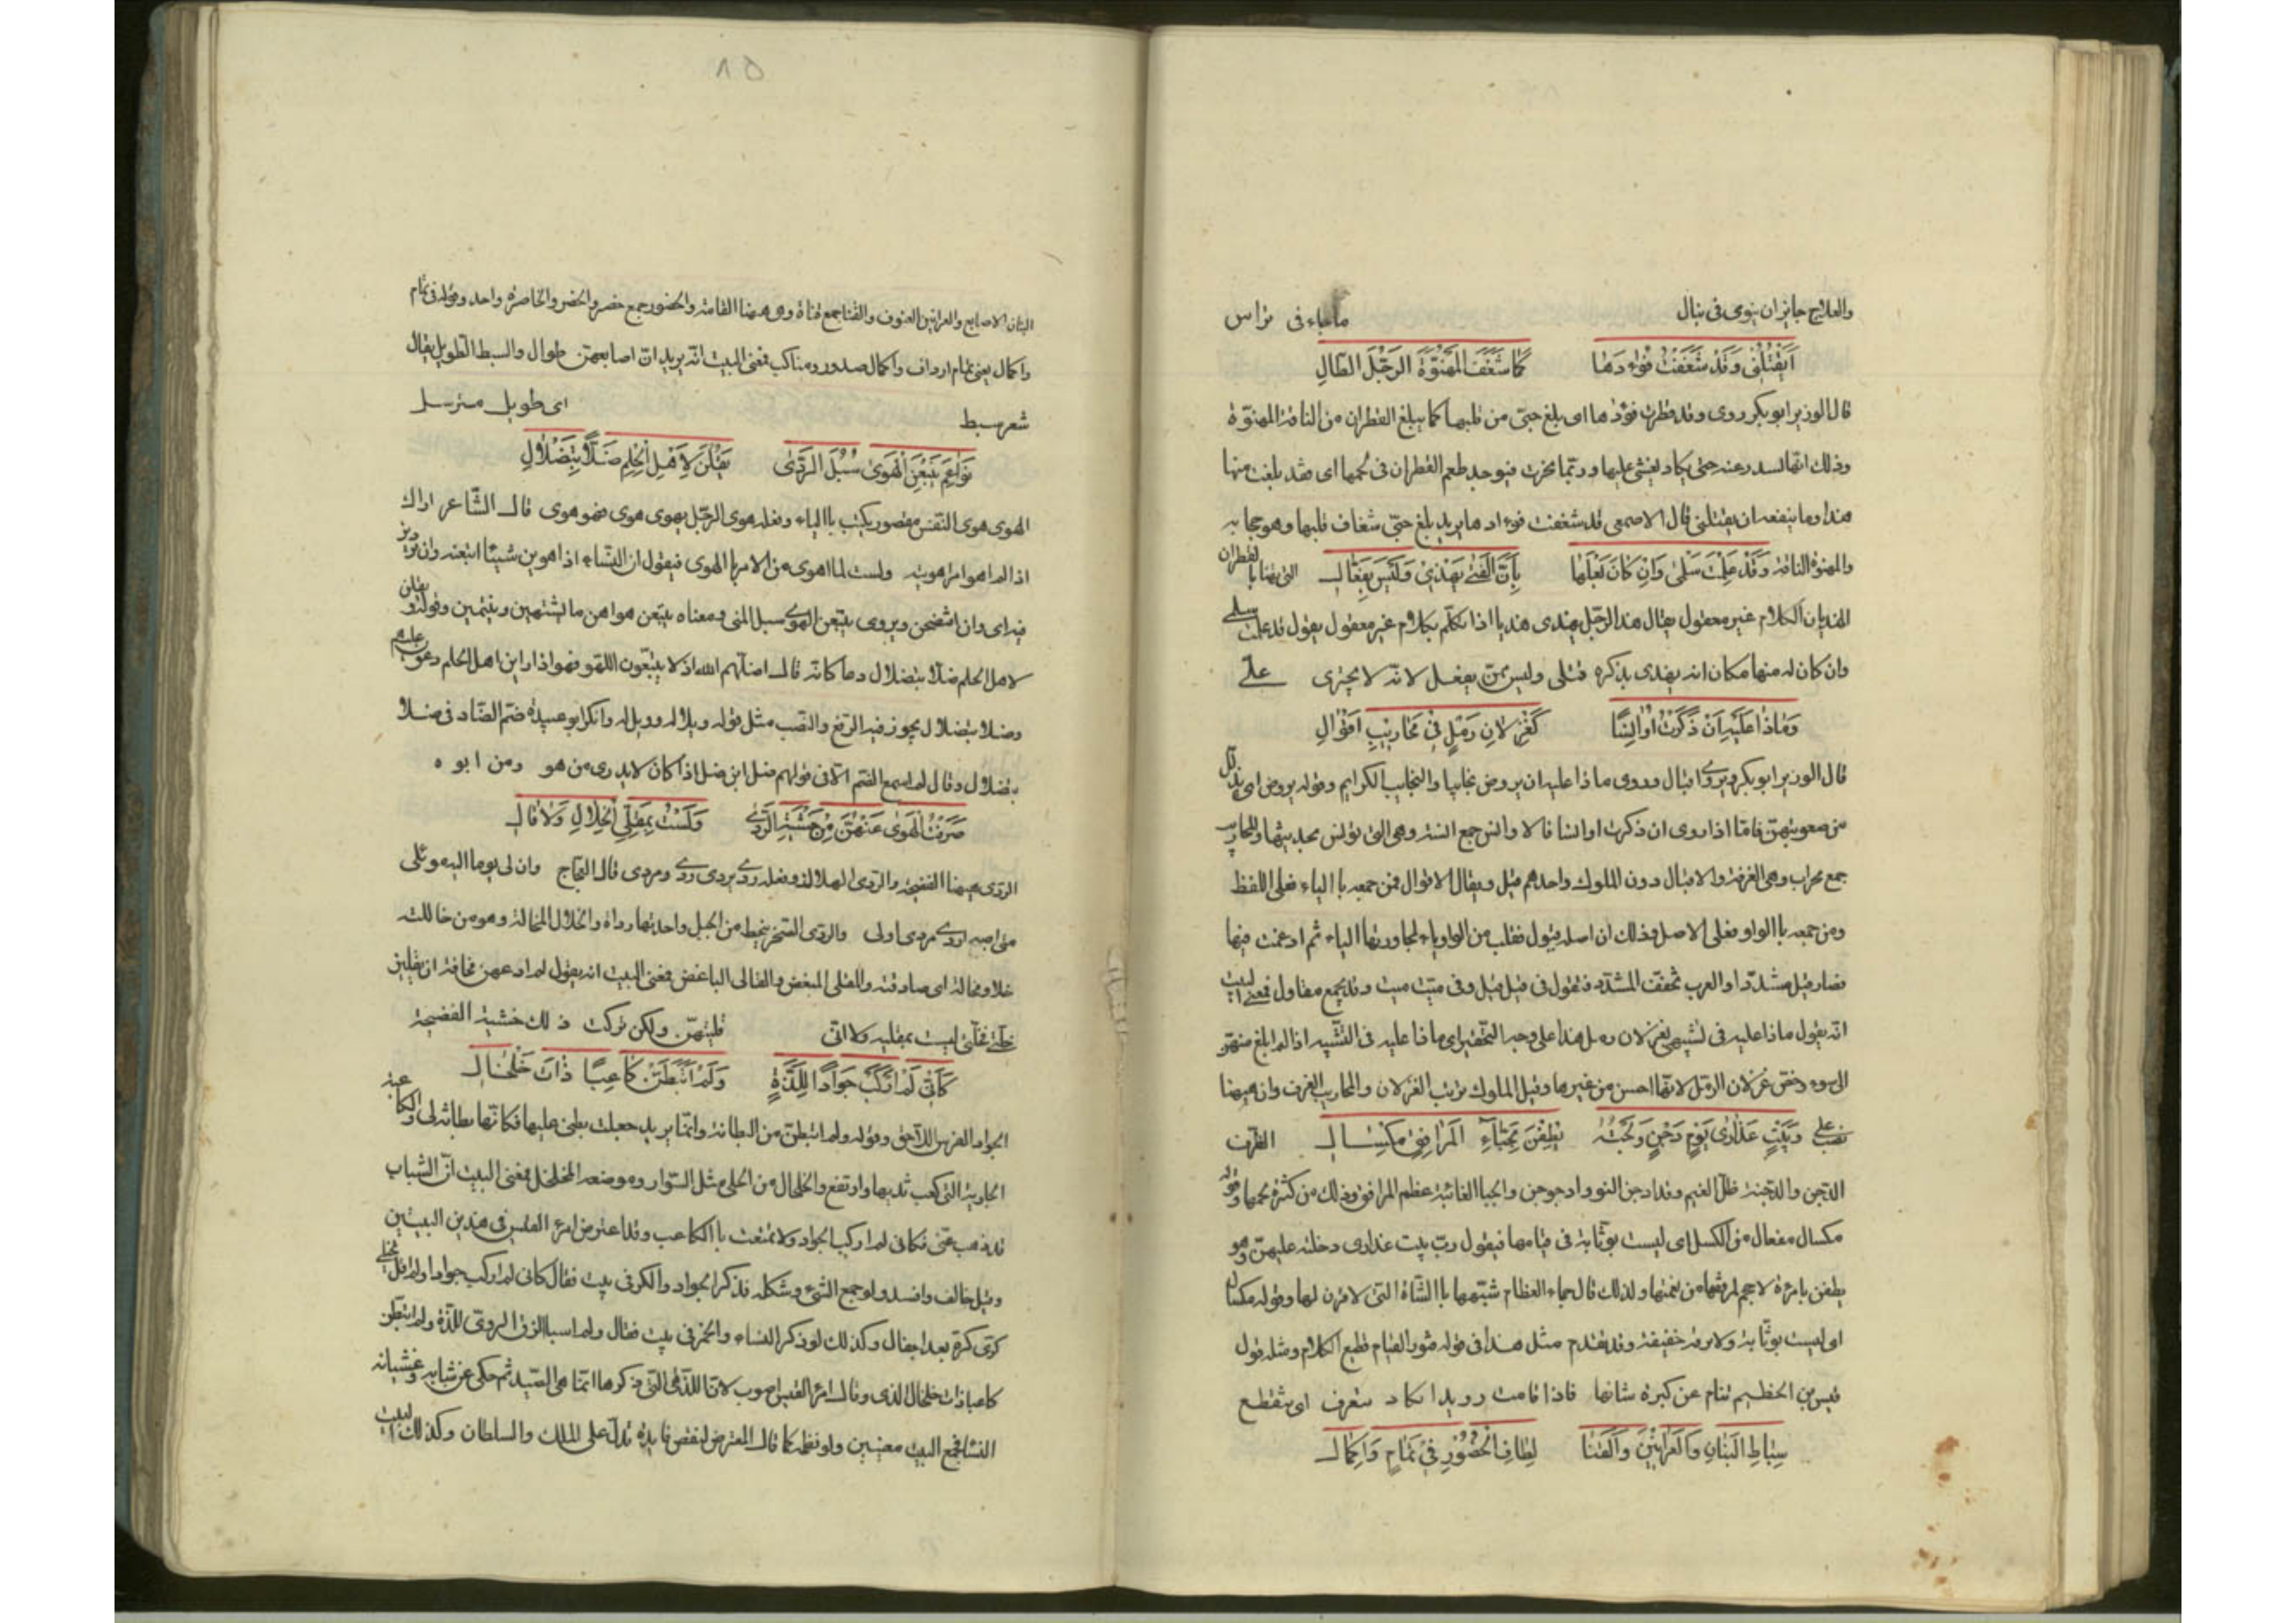 والعلاج جايز ان ينوى فى نبال ماجاء فى تراس
اَيَقْتُلُنى وَقَدْ شَعَفْتُ فُوءادَها كَما شَعَفَ المَهْنُوّةَ الرَّجُلُ الطّالِ
قال الوزير ابو بكر روى وقد قطرت فؤدها اى بلغ حبّى من قلبها كما يبلغ القطران من الناقة المهنوّة
وذلك انّها لسدر عنه حتى يكاد يغشى عليها وربّما نحرت فيوجد طعم القطران فى لحمها اى فقد بلغت منها
هذا وما ينفعه ان يقتلنى قال الاصمعى قد شغفت فوءادها يريد بلغ حبّى شغاف قلبها وهو حجابه
والمهنوة الناقة وَقَدْ عَلِمَتْ سَلْمى وَاِنْ كانَ بَعْلَها بِاَنَّ الفَتى يَهْذِىْ وَلَيْسَ بِفَعّالِ التى يهنا بالقطران
الهذيان الكلام غير معقول يقال هذا الرّجل يهذى هذيا اذا تكلّم بكلام غير معقول يقول قد علمت سلمى
وان كان له منها مكان انه يهذى بذكره قتلى وليس ممّن يفعل لانّه لا يجترى على
وَماذا عَلَيْهِ اَنْ ذَكَرْتُ اَوانِسًا كَغِزْلانِ رَمْلٍ فِىْ مَحاريْبِ اَقْوالِ
قال الوزير ابو بكر ويروى اقيال وروى ماذا عليه ان يروض نجايبا والنجايب الكرايم وقوله يروض اى يذلل
من صعوبتهنّ فامّا اذا روى ان ذكرت اوانسا فالاوانس جمع انسة وهى التى تؤنس بحديثها والمحاريب
جمع محراب وهى الغرفة والاقيال دون الملوك واحدهم قيل ويقال الاقوال فمن جمعه باالياء فعلى اللفظ
ومن جمعه باالواو فعلى الاصل وذلك ان اصله قيول فقلب من الواو ياء لمجاورتها الياء ثم ادغمت فيها
فصار قيل مشدّدا والعرب تخفف المشدّد فتقول فى قيّل قيل وفى ميّت ميت وقد يجمع مقاول فمعنى البيت
انّه يقول ماذا عليه فى تشبيهى بغزلان رمل هذا على وجه التحقير اى ماذا عليه فى التشبيه اذا لم ابلغ منهنّ
الى سوء وخصّ غزلان الرّمل لانّها احسن من غيرها وقيل الملوك تربّب الغزلان والمحاريب الغرف وان هيهنا
نصب على وَبَيْتِ عَذارَى يَوْمِ دَجْنٍ وَلَجْتُهُ يَطِفْنَ بِجَبّاءِ المَرافِقِ مِكْسالِ الظرف
الدّجن والدّجنة ظلّ الغيم وقد ادجن النوء وادجوجن والجبا الغائبة عظم المرافق وذلك من كثرة لحمها وقوله
مكسال مفعال من الكسل اى ليست بوثّابة فى قيامها فيقول ربّ بيت عذارى دخلته عليهنّ وهو
يطفن بامرءة لا حجم لمرفقها من نعمتها ولذلك قال جباء العظام شبّهها باالشّاة التى لا قرن لها وقوله مكسال
اى ليست بوثّابة ولا برقة خفيفة وقد تقدم مثل هذا فى قوله فتور القيام قطيع الكلام ومثله قول
قيس بن الخطيم تنام عن كبرة شانها فاذا قامت رويدا تكاد تنغرف اى تنقطع
سِباطِ البَنانِ وَالعَرانِيْنَ وَالقَنا لِطافِ الخُصُوْرِ فِىْ تَمامٍ وَاِكْمالِ
البنان الاصابع والعرانين الانوف والقنا جمع قناة وهى هيهنا القامة والخصور جمع خصر والخصر والخاصرة واحد وقوله فى تمام
واكمال يعنى تمام ارداف واكمال صدور ومناكب فمعنى البيت انّه يريد انّ اصابعهنّ طوال والسبط الطويل يقال
شعر سبط اى طويل مسترسل
نَواعِمَ يَتْبَعْنَ الهَوى سُبُلَ الرَّدى يَقُلْنَ لِاَهْلِ الحِلْمِ ضَلّاً بِتَضْلالِ
الهوى هوى النفس مقصور يكتب باالياء وفعله هوى الرّجل يهوى هوى فهو هوى قال الشّاعر اراك
اذا لم اهو امرا هويته ولست لما اهوى من الامر باالهوى فيقول ان النّساء اذا هوين شيئا اتبعنه وان
فيه اى وان افتضحن ويروى يتبعن الهوى سبل المنى ومعناه يتبعن هواهن ما يشتهين ويتمنين وقوله يقلن
لاهل الحلم ضلّا بتضلال دعا كانّه قال اضلّهم الله اذ لا يتبعون اللهو فهو اذا راين اهل الحلم دعون عليهم
وضلا بتضلال يجوز فيه الرّفع والنّصب مثل قوله ويلا له وويل له وانكر ابو عبيدة ضمّ الضّاد فى ضلا
بتضلال وقال لم اسمع الضّم الا فى قولهم ضلّ ابن ضلّ اذا كان لا يدرى من هو ومن ابوه
صَرَفْتُ الهَوى عَنْهُنَّ مِنْ خَشْيَةِ الرَّدى وَلَسْتُ بِمَقْلِىِّ الخِلالِ وَلا قالِ
الرّدى هيهنا الفضيحة والرّدى الهلاك وفعله ردى يردى ردى ومردى قال العجاج وان لى يوما اليه موئلى
متى اصبه اردى مردى اولى والرّدى الصّخر ينحطّ من الجبل واحدتها رداة والخلال المخالة وهو من خاللته
خلا ومخالة اى صادقته والمقلى المبغض والقالى الباغض فمعنى البيت انه يقول لم ادعهن مخافة ان يقلين
خلّتى فخلّتى ليست بمقليه ولا انّى قليتهنّ ولكن تركت ذلك خشية الفضيحة
كَاَنِّىَ لَمْ اَرْكَبْ جَوادًا لِلَذَّةٍ وَلَمْ اَتَبَطَّنْ كاعِبًا ذاتَ خَلْخالِ
الجواد الفرس وقوله ولم اتبطّن من البطانة وانّما يريد جعلت بطنى عليها فكانّها بطانة لى والكاعبة
الجارية التى كعب ثديها وارتفع والخلخال من الحلى مثل السّوار وموضعه المخلخل فمعنى البيت انّ الشباب
قد ذهب عنّى فكانى لم اركب الجواد ولا تمتعت باالكاعب وقد اعترض امرء القيس فى هذين البيتين
وقيل خالف وافسد ولو جمع الشّىء وشكله فذكر الجواد والكرّ فى بيت فقال كانى لم اركب جوادا ولم اقل لخيلى
كرّى كرّة بعد اجفال وكذلك لو ذكر النساء والخمر فى بيت فقال ولم اسبا الزقّ الروىّ للذّة ولم اتبطّن
كاعبا ذات خلخال الذى وقال امرء القيس اصوب لانّ اللّذة الّتى ذكرها انّما هى الصّيد ثم حكى عن شبابه وغشيانه
النسا فجمع البيت معنيين ولو نظمه كما قال المعترض لنقص فايدة تدلّ على الملك والسلطان وكذلك البيت